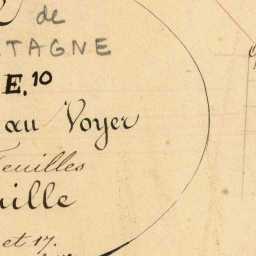 de
TAGNE
E.10
au Voyer
Feuilles
uille
et 17.